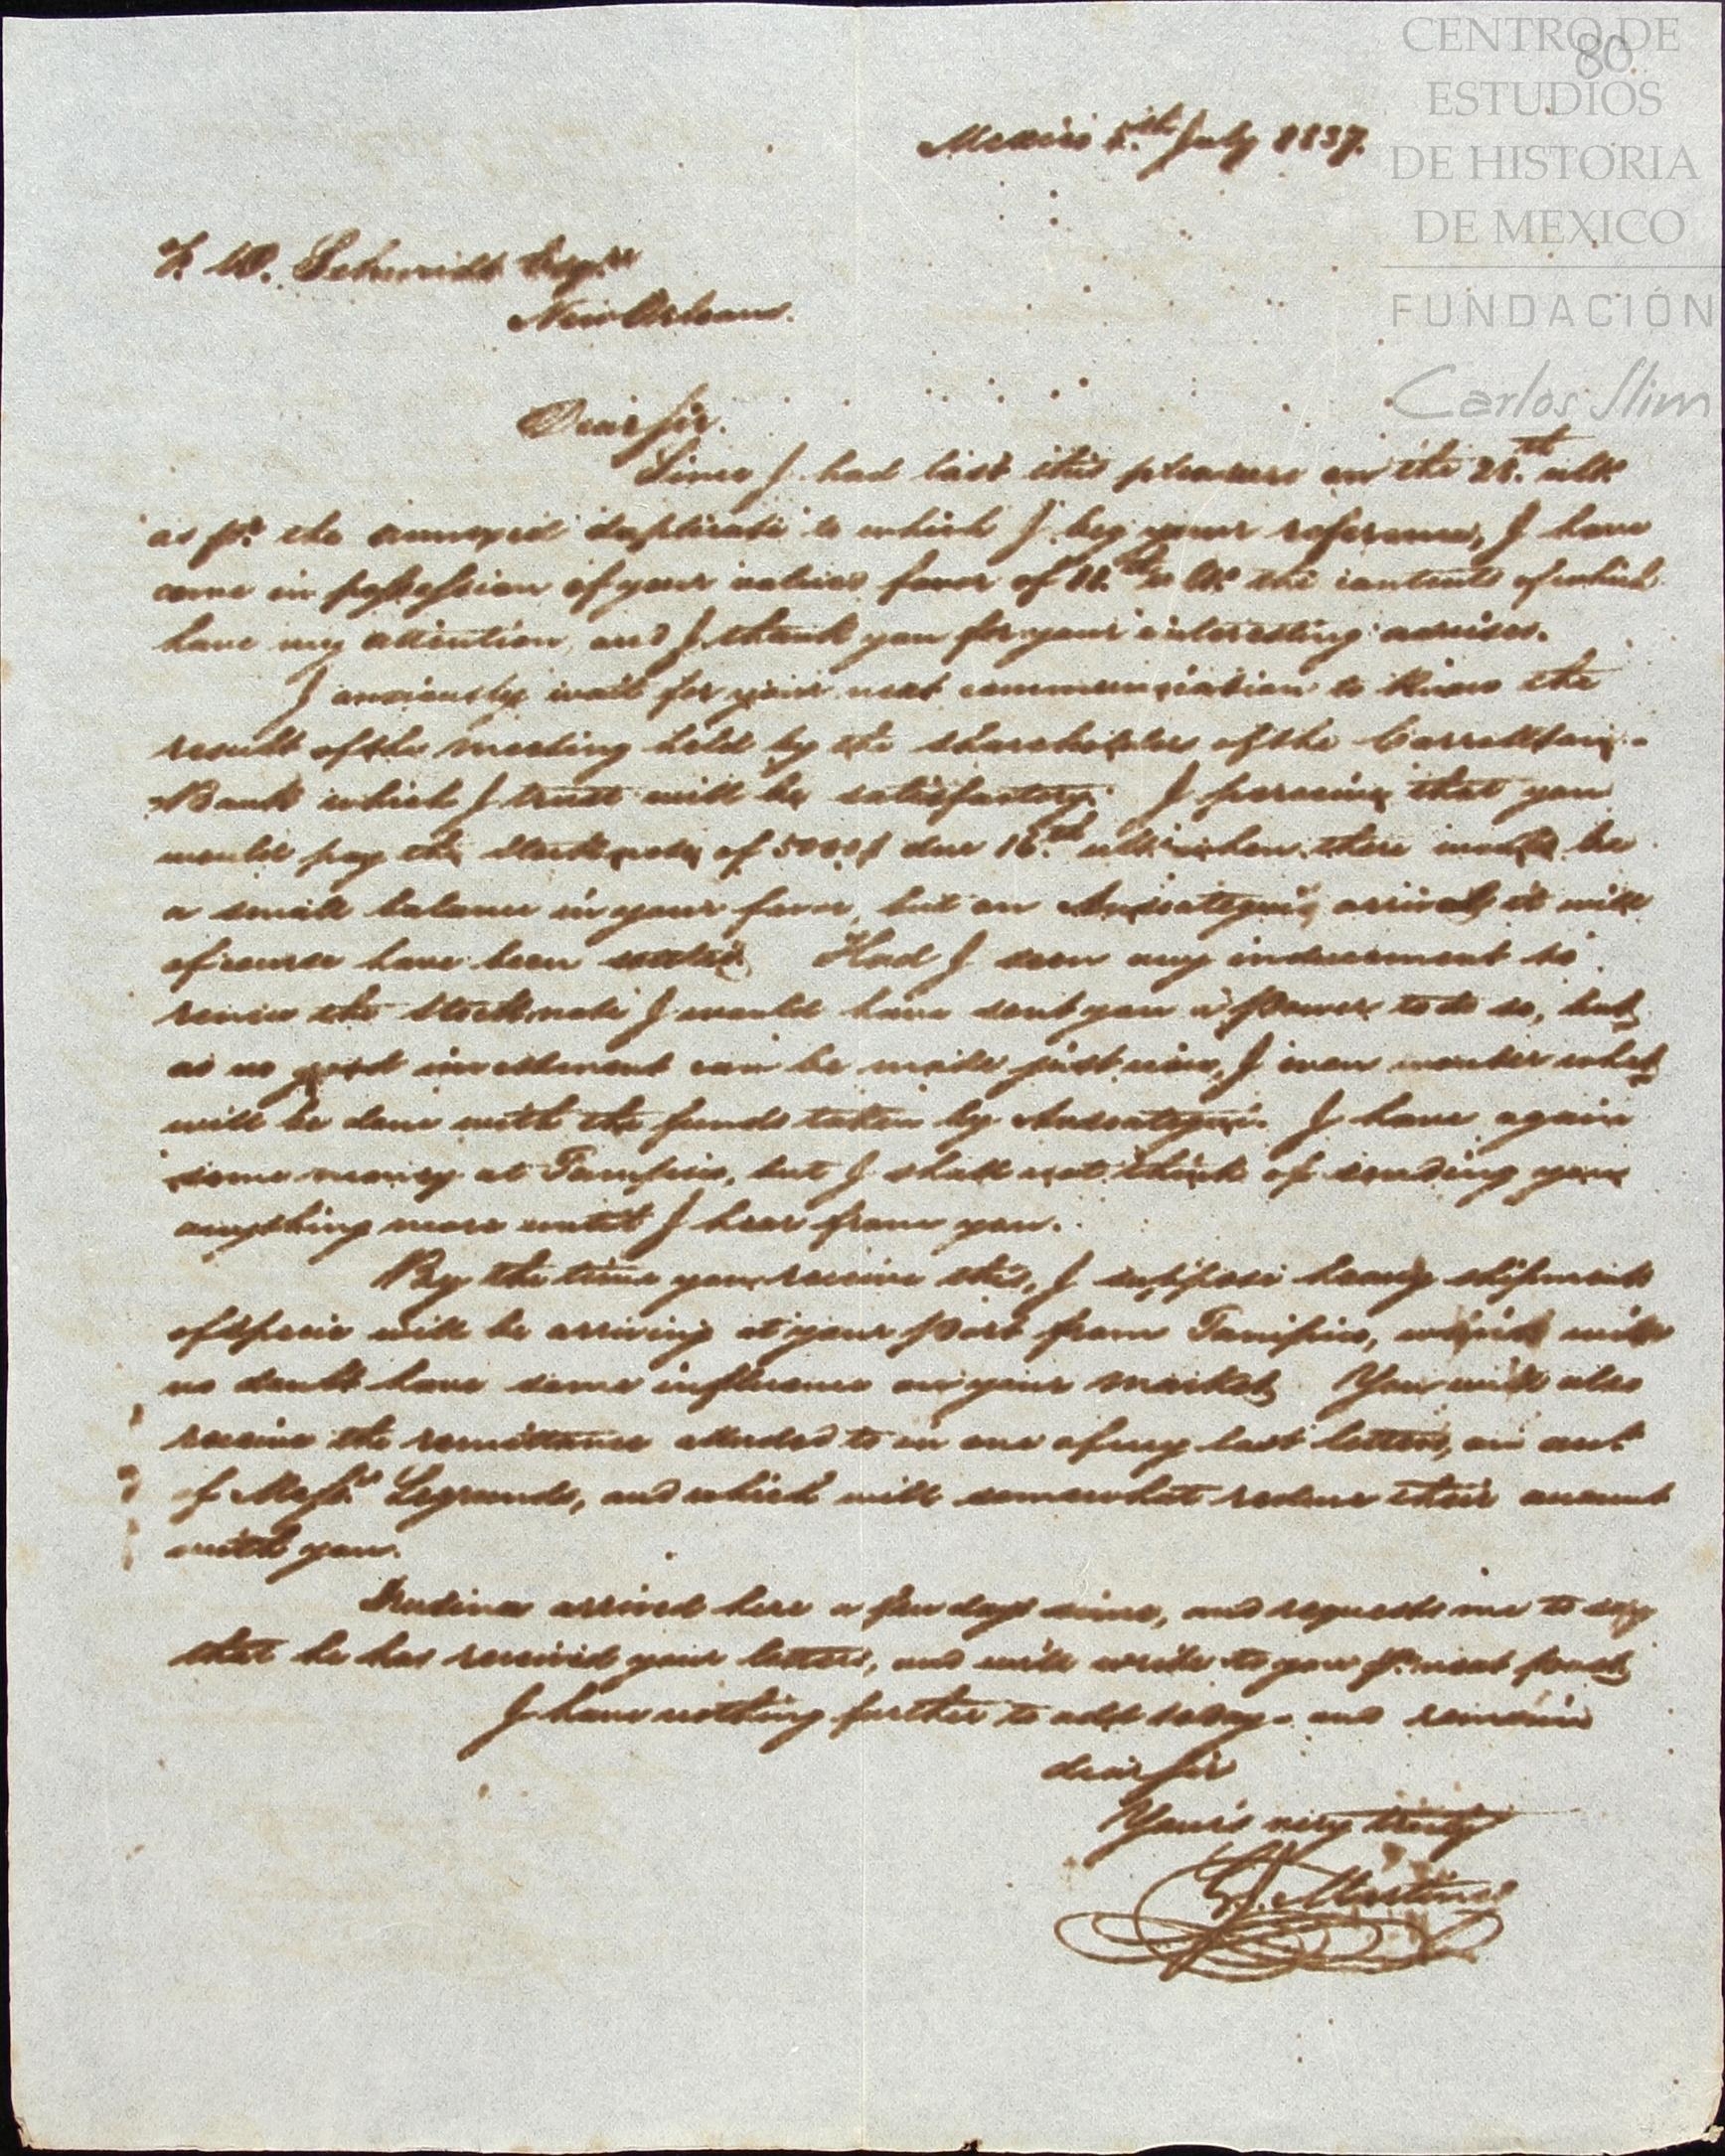 CENTRO DE
80
ESTUDIOS
DE HISTORIA
DE MEXICO
FUNDACIÓN
Carlos Slim
Mexico 5th July 1837.
F. W. Schmidt Esqre
New Orleans.
Dear Sir.
Since I had last this pleasure on the 28.th ulto
as pr. the annexed duplicate to which I beg your reference, I have
come in possession of your valued favor of 11.th the contents of which
have my attention, and I thank you for your interesting advises.
I anxiously wait for your next communication to know the
result of the meeting held by the shareholders of the Carrollton
Bank which I trust will be satisfactory. I perceive that you
would pay the Stock note of 5000$ due 16.th ulto when there would be
a small balance in your favor, but on Ansoategui's arrival it will
of course have been settled. Had I seen any inducement to
renew the Stock note I would have sent you a Power to do so, but
as no good investment can be made just now, I even wonder what
will be done with the funds taken by Ansoategui. I have again
some money at Tampico, but I shall not think of sending you
anything more until I hear from you.
By the time you receive this, I suppose heavy shipments
of specie will be arriving at your Port from Tampico, which will
no doubt have some influence on your market. You will also
receive the remittance alluded to in one of my last letters, on act.
of Messrs. Legrands, and which will somewhat reduce their account
with you.
arrived here a few days since, and requests me to say
that he has received your letters, and will write to you pr. next post.
I have nothing further to add today and remain
dear Sir
Yours very truly
Martinez